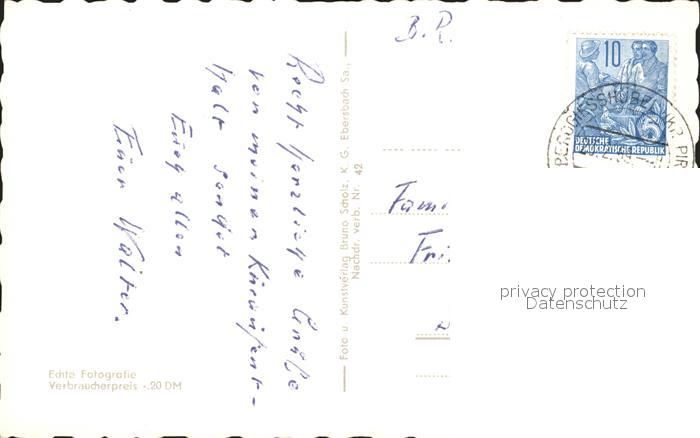 Recht herzliche Grüße
von meinem Kuraufent-
halt sendet
Euch allen
Euer Walter.
Echte Fotografie
Verbraucherpreis -.20 DM
Foto u. Kunstverlag Bruno Scholz, K. G. Ebersbach Sa.,
Nachdr. verb. Nr. 42
B. R.
10
5
DEUTSCHE
DEMOKRATISCHE REPUBLIK
BERGGIESSHÜBEL (KR. PIR
Fami
Fri
privacy protection
Datenschutz